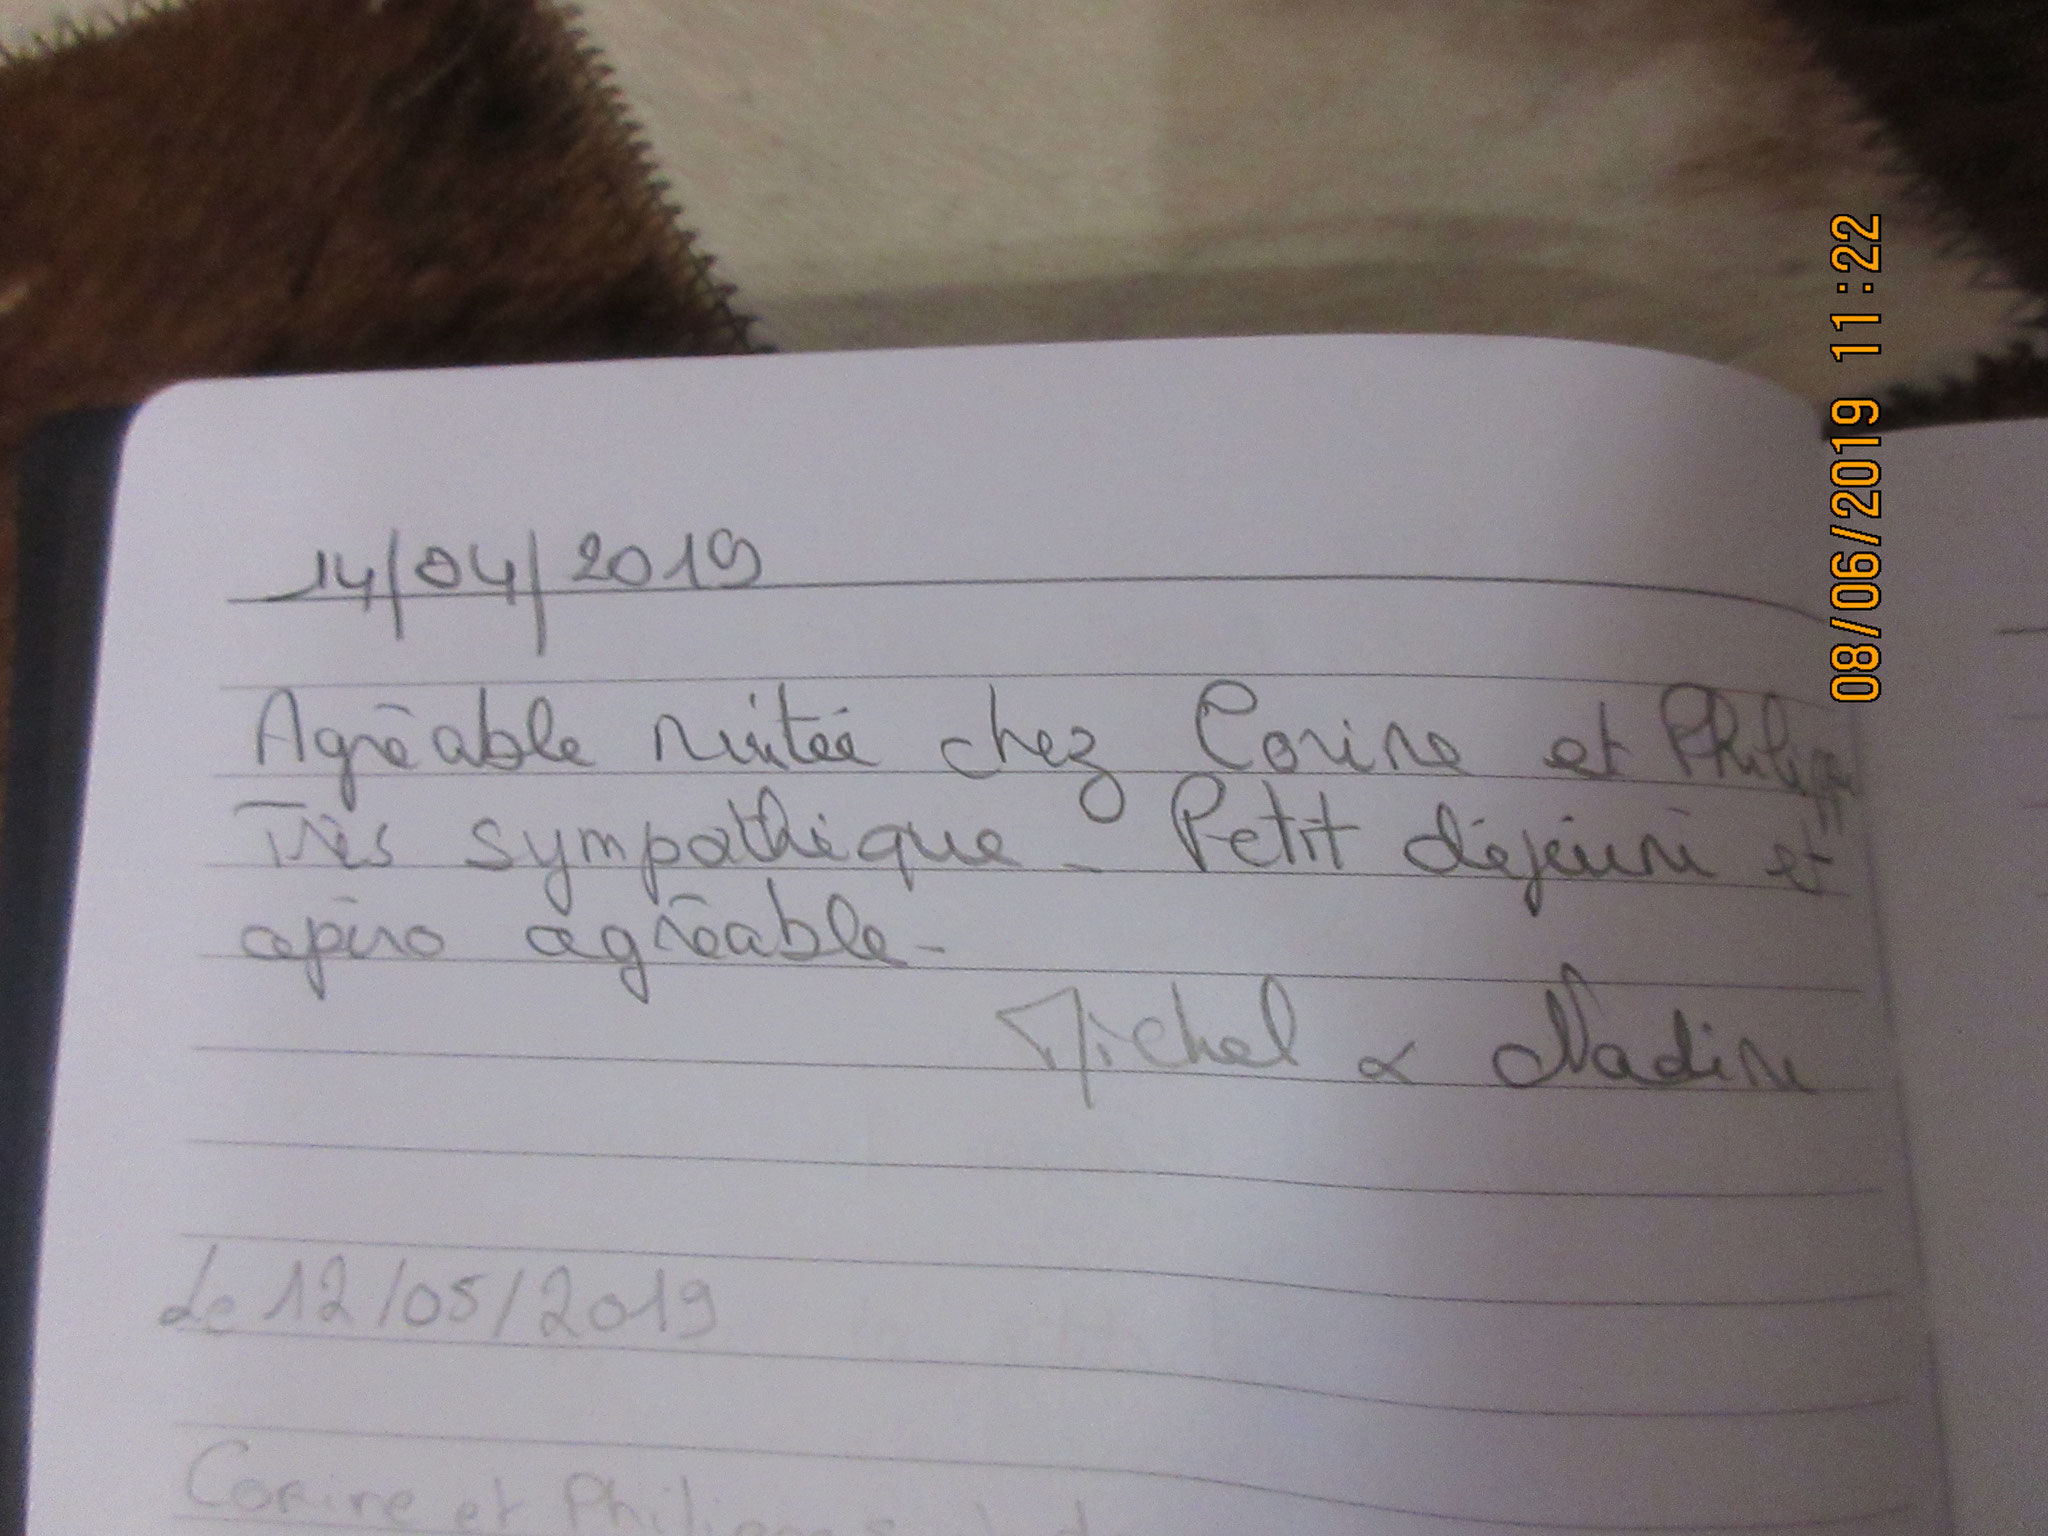 14/04/2019
Agréable nuitée chez Corine et Philippe
Très sympathique - Petit déjeuné et
apéro agréable -
Michel & Nadine
Le 12/05/2019
Corine et Philippe
08/06/2019 11:22